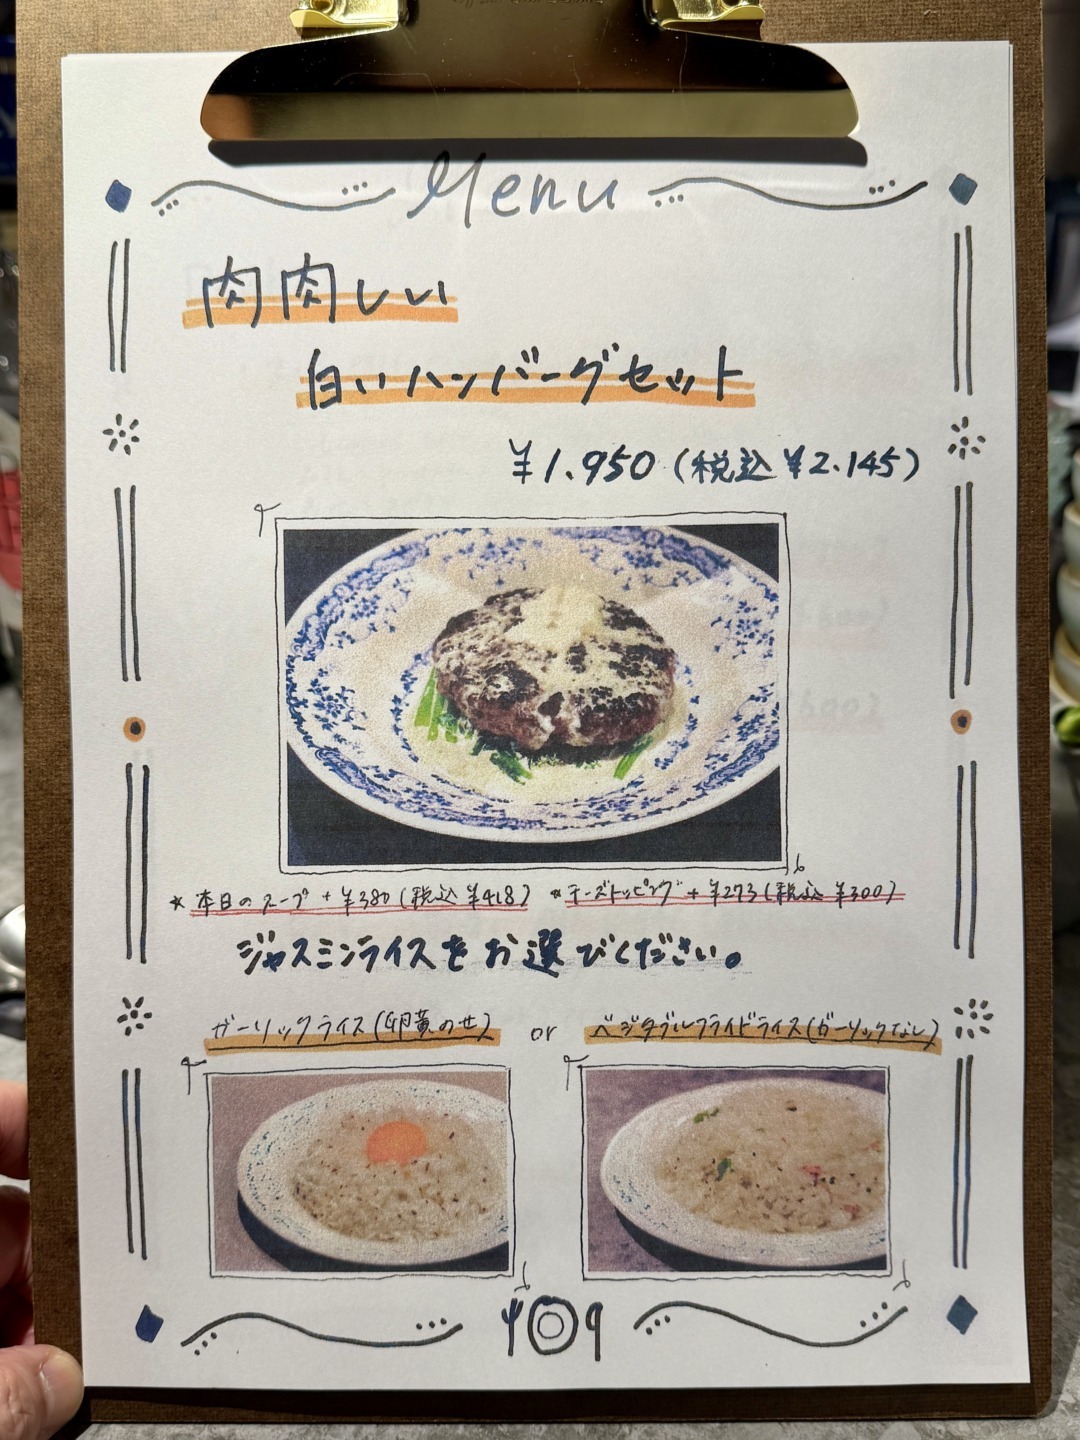 Menu
肉肉しい
白いハンバーグセット
¥1.950(税込¥2.145)
*本日のスープ+¥380(税込¥418) *チーズトッピング+¥273(税込¥300)
ジャスミンライスをお選びください。
ガーリックライス(卵黄のせ) or ベジタブルフライドライス(ガーリックなし)